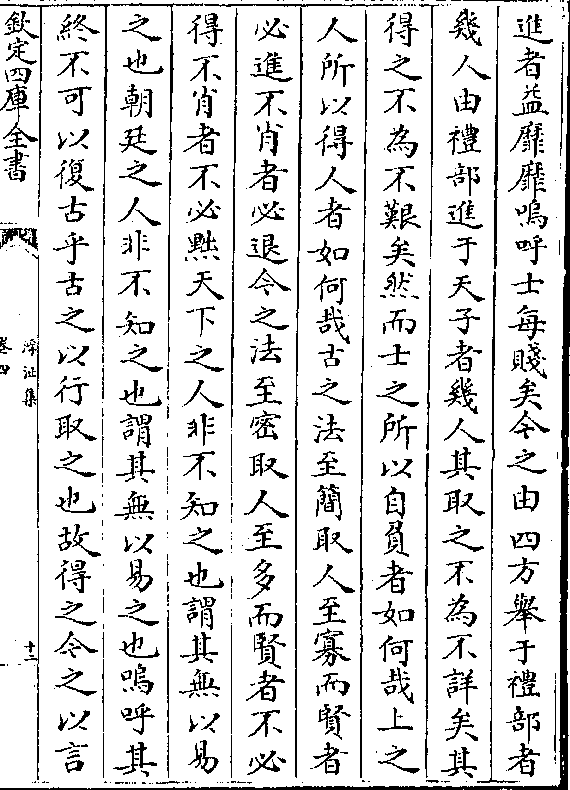 進者益靡靡嗚呼士每賤矣今之由四方舉于禮部者
幾人由禮部進于天子者幾人其取之不為不詳矣其
得之不為不艱矣然而士之所以自負者如何哉上之
人所以得人者如何哉古之法至簡取人至寡而賢者
必進不肖者必退今之法至密取人至多而賢者不必
得不肖者不必黜天下之人非不知之也謂其無以易
之也朝廷之人非不知之也謂其無以易之也嗚呼其
終不可以復古乎古之以行取之也故得之今之以言
欽定四庫全書
浮沚集
卷四
十三